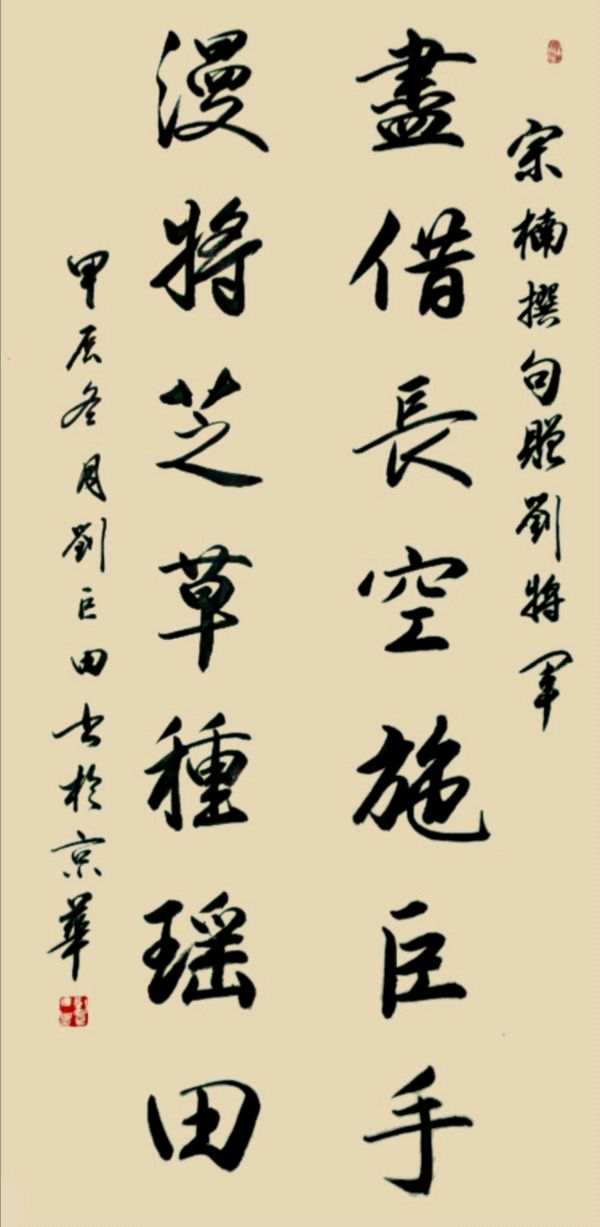 宗楠撰句贈劉將軍
盡借長空施巨手
漫將芝草種瑶田
甲辰冬月劉巨田书於京華